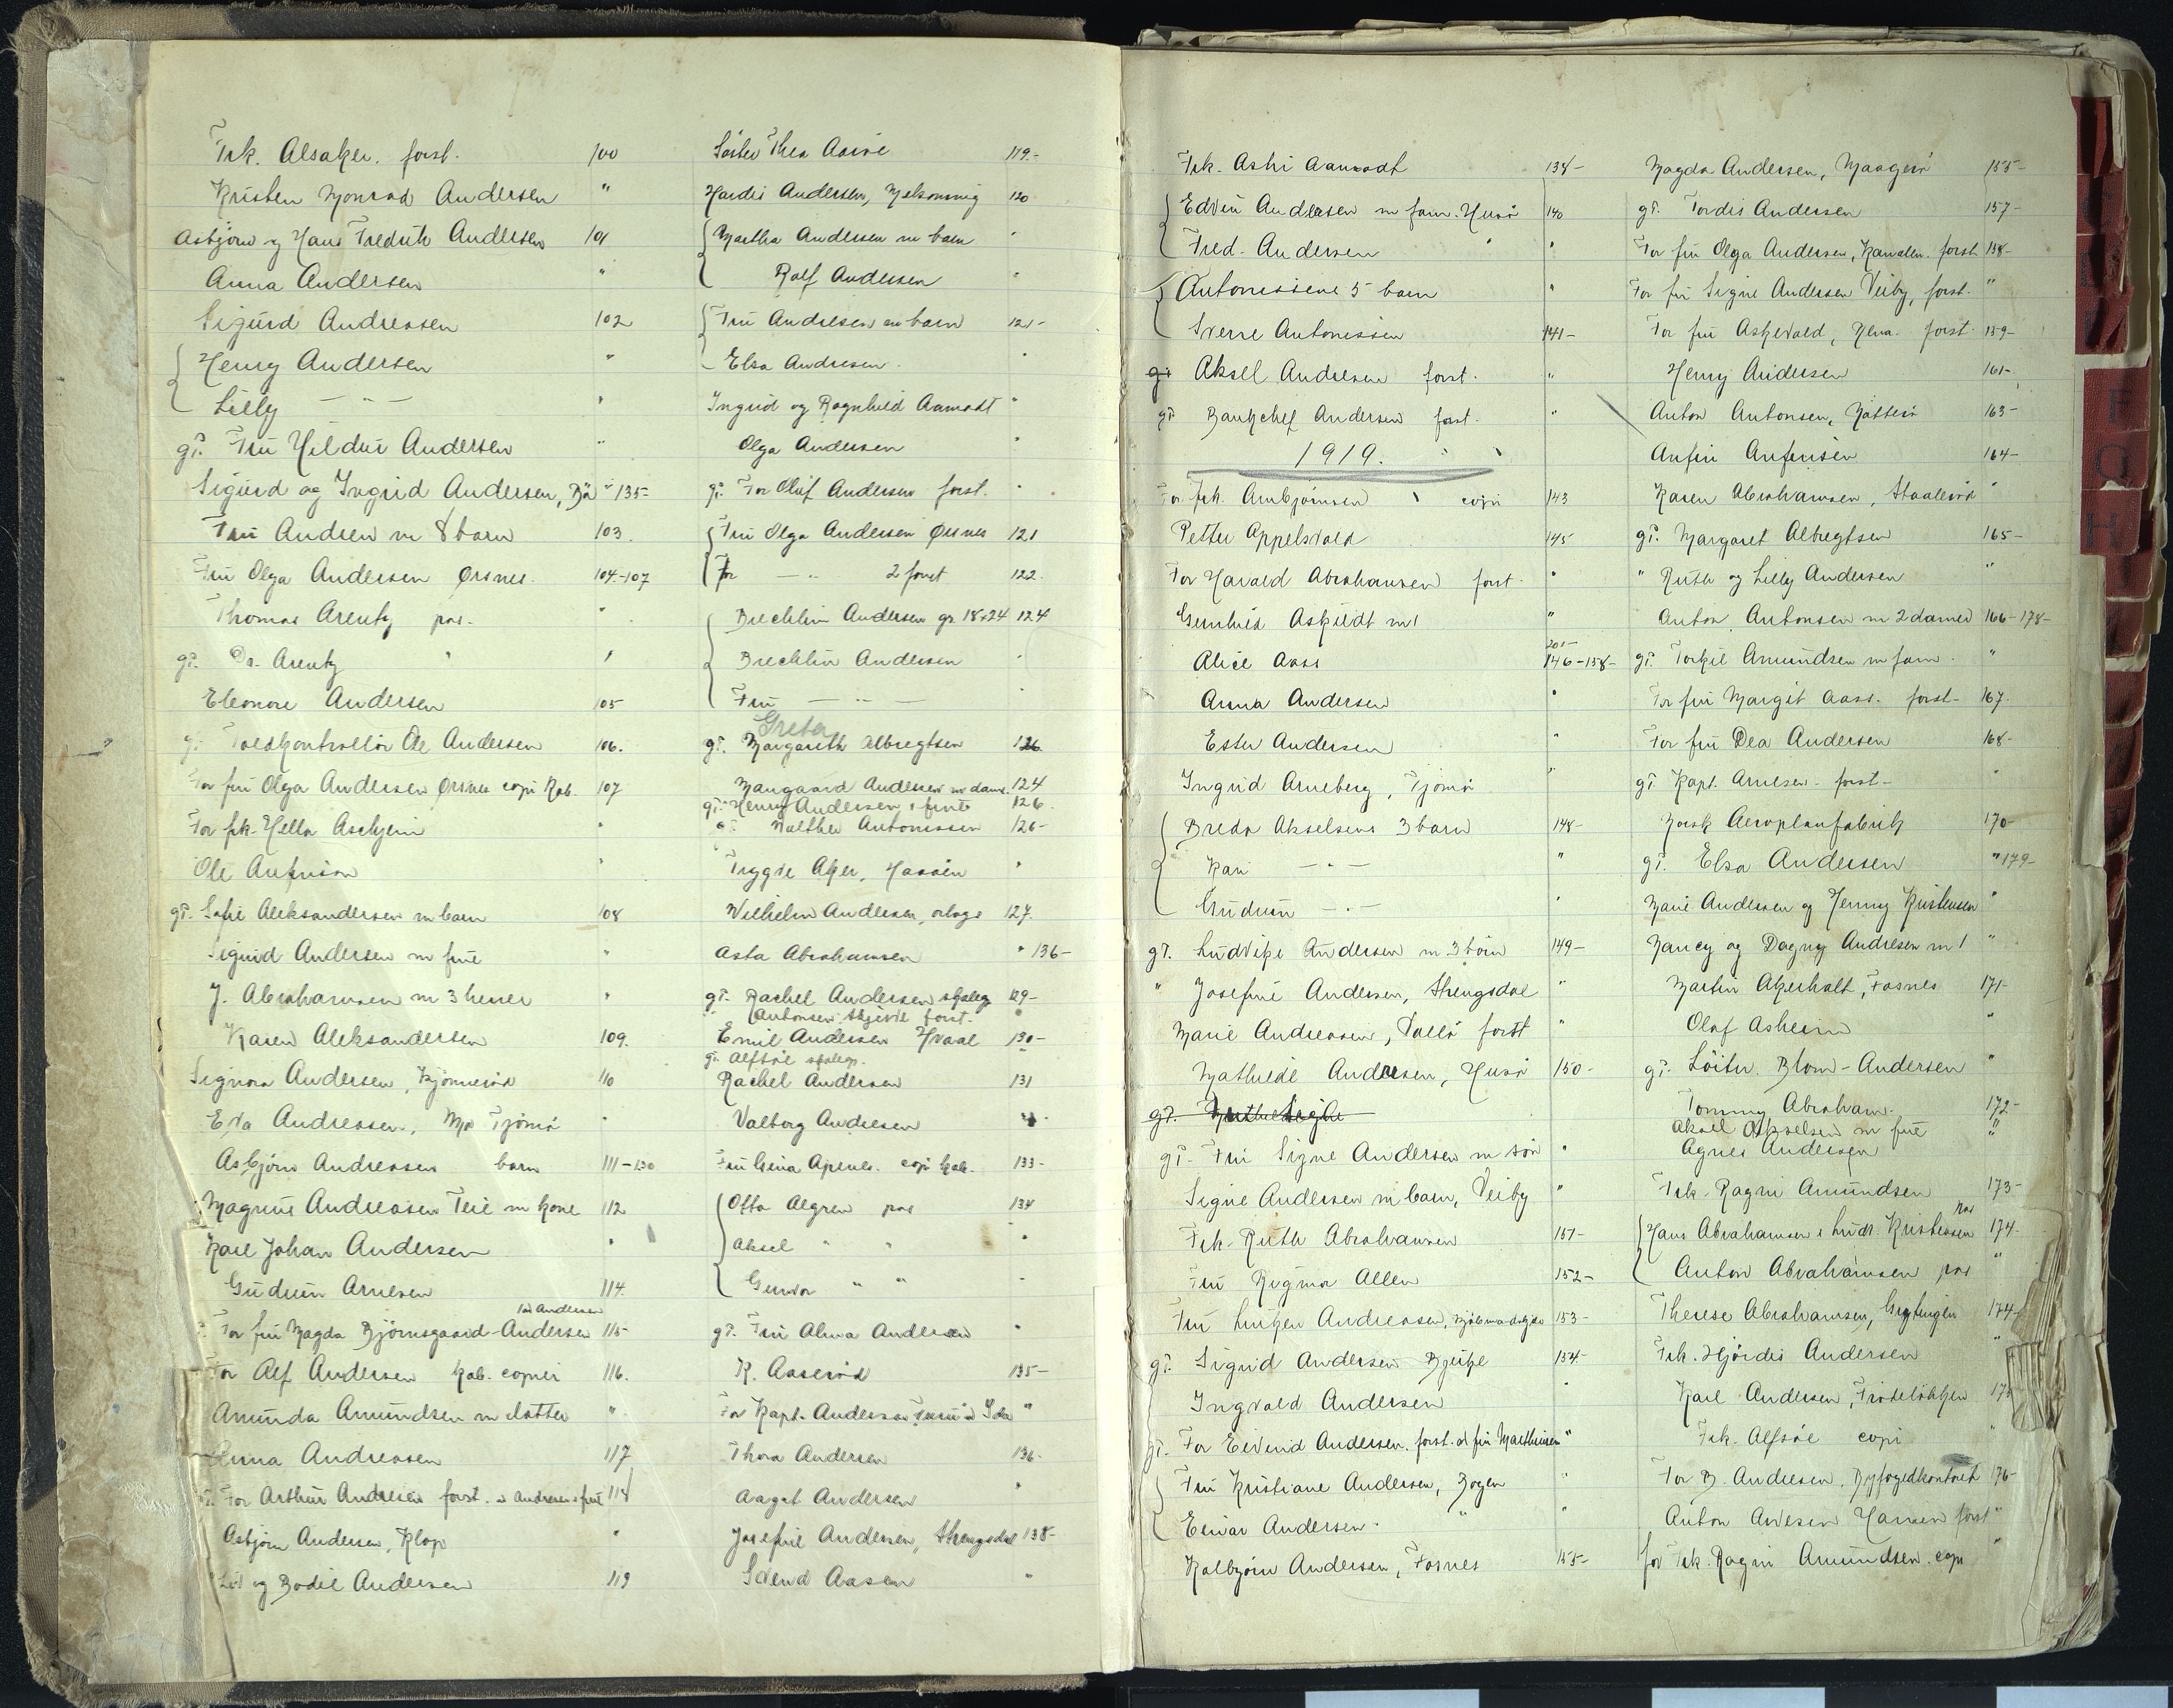 Frk. Alsaker. forst. 100
Kristen Monrad Andersen "
Asbjørn og Hans Fredrik Andersen 101
Anna Andersen "
Sigurd Andreasen 102
Henry Andersen "
Lilly — " — "
gt. Fru Hildur Andersen "
Sigurd og Ingrid Andersen, " 135-
Fru Andsen m 8 barn 103
Fru Olga Andersen Ørsnes. 104-107
Thomas Arentz pas. "
gt. Dr. Arentz " "
Eleonore Andersen 105
gt. Toldkontrollør Ole Andersen 106.
For fru Olga Andersen Ørsnes copi Kab. 107
For frk. Hella Aschjem "
Ole Anfinsen "
gt. Sofie Aleksandersen m barn 108
Sigurd Andersen m frue "
J. Abrahamsen m 3 herrer "
Karen Aleksandersen 109.
Signora Andersen, Kjønnerød 110
Eva Andreassen, Tjømø "
Asbjørn Andreassen barn 111-130
Magnus Andreasen Teie m kone 112
Karl Johan Andersen "
Gudrun Arnesen 114.
Andersen
For fru Magda Bjørnsgaard-Andersen 115-
For Alf Andersen kab. copier 116.
Amunda Amundsen m datter "
Anna Andreasen 117
For Arthur Andresen forst. 118
Asbjørn Andersen, Klop "
og Bodil Andersen 119
Søster Thea Aarre 119.-
Hardis Andersen, 120
Martha Andersen m barn "
Rolf Andersen "
Fru Andresen m barn 121-
Elsa Andresen. "
Ingrid og Ragnhild Aamodt "
Olga Andersen "
gt. For Oluf Andersen forst. "
Fru Olga Andersen Ørsnes 121
For — " 2 forst 122.
Brechlin Andersen gr. 18x24 124
Brechlin Andersen "
Fru — " — "
Greta
gt. Margareth Albregtsen 126
Andersen m dame. 124
gt. Henry Andersen, frue 126.
gt. Walther Antonissen 126-
Trygve Aker, "
Wilhelm Andersen, 127.
Asta Abrahamsen " 136-
gt. Rachel Andersen skoleg 129-
Antonsen forst.
Emil Andersen Hvaal 130-
gt. Alfsøe skoleg.
Rachel Andersen 131
Valborg Andresen
Fru Apenes. copi kab. 133-
Otto Algren pas 134
Aksel " " "
Gunvor " " "
gt. Fru Alma Andersen "
K. Aaserød 135-
For Kapt. Andersen "
Thora Andersen 136-
Aagot Andersen "
Josefine Andersen, Strengsdal 138-
Svend Aasen "
Frk. Aamodt 134-
Edvin Andersen m fam. Husø 140
Fred. Andersen " "
Antonissens 5 barn "
Sverre Antonissen 141-
gt. Aksel Andresen forst. "
gt. Bankchef Andersen forst. "
1919.
For frk. Arnbjørnsen copi 143
Petter Appelsvold 145
For Harald Abrahamsen forst. "
Gunhild Askildt m 1 "
201-
Alice Aass 146-158-
Anna Andersen "
Ester Andersen "
Ingrid Arneberg, Tjømø "
Breda Akselsens 3 barn 148-
Kari — " — "
Gudrun — " — "
gt. Ludvike Andersen m 3 børn 149-
" Josefine Andersen, Strengsdal "
Marie Andreassen, Vallø forst "
Mathilde Andresen, Husø 150-
gt. Fru Signe Andersen m søn "
Signe Andersen m barn, Veiby "
Frk. Ruth Abrahamsen 151-
Fru Rigmor Allen 152-
Fru Andreassen, 153-
gt. Sigrid Andersen 154-
Ingvald Andersen "
gt. For Eivind Andersen. forst. fru Marthinsen "
Fru Kristiane Andersen, Bogen "
Einar Andersen. " "
Kolbjørn Andersen, Fosnes 155-
Magda Andersen, 155-
gt. Tordis Andersen 157-
For fru Olga Andersen, forst 158-
For fru Signe Andersen Veiby, forst. "
For fru Askevold, forst. 159-
Henry Andersen 161-
Anton Antonsen, Nøtterø 163-
Anfin Anfinsen 164-
Karen Abrahamsen, Staalerød "
gt. Margaret Albregtsen 165-
" Ruth og Lilly Andersen "
Anton Antonsen m 2 damer 166-178-
gt. Torkil Amundsen m fam. "
For fru Margit Aass. forst- 167.
For fru Dea Andersen 168-
gt. Kapt. Arnesen. forst- "
Norsk Aeroplanfabrik 170-
gt. Elsa Andersen " 179-
Marie Andersen og Henny Kristensen "
Nancy og Dagny Andresen m 1 "
Martin Akerholt, Fosnes 171-
Olaf Asheim "
gt. Løitn. Blom-Andersen "
Tommy Abraham. 172-
Aksel Akselsen m frue "
Agnes Andersen "
Frk. Ragni Amundsen 173-
pas
Hans Abrahamsen Kristensen 174-
Anton Abrahamsen pas "
Therese Abrahamsen, 174-
Frk. Hjørdis Andersen "
Karl Andersen, 175
Frk. Alfsøe copi "
For B. Andresen. Byfogedkontoret 176-
Anton Hansen forst "
for Frk. Ragni Amundsen. copi "